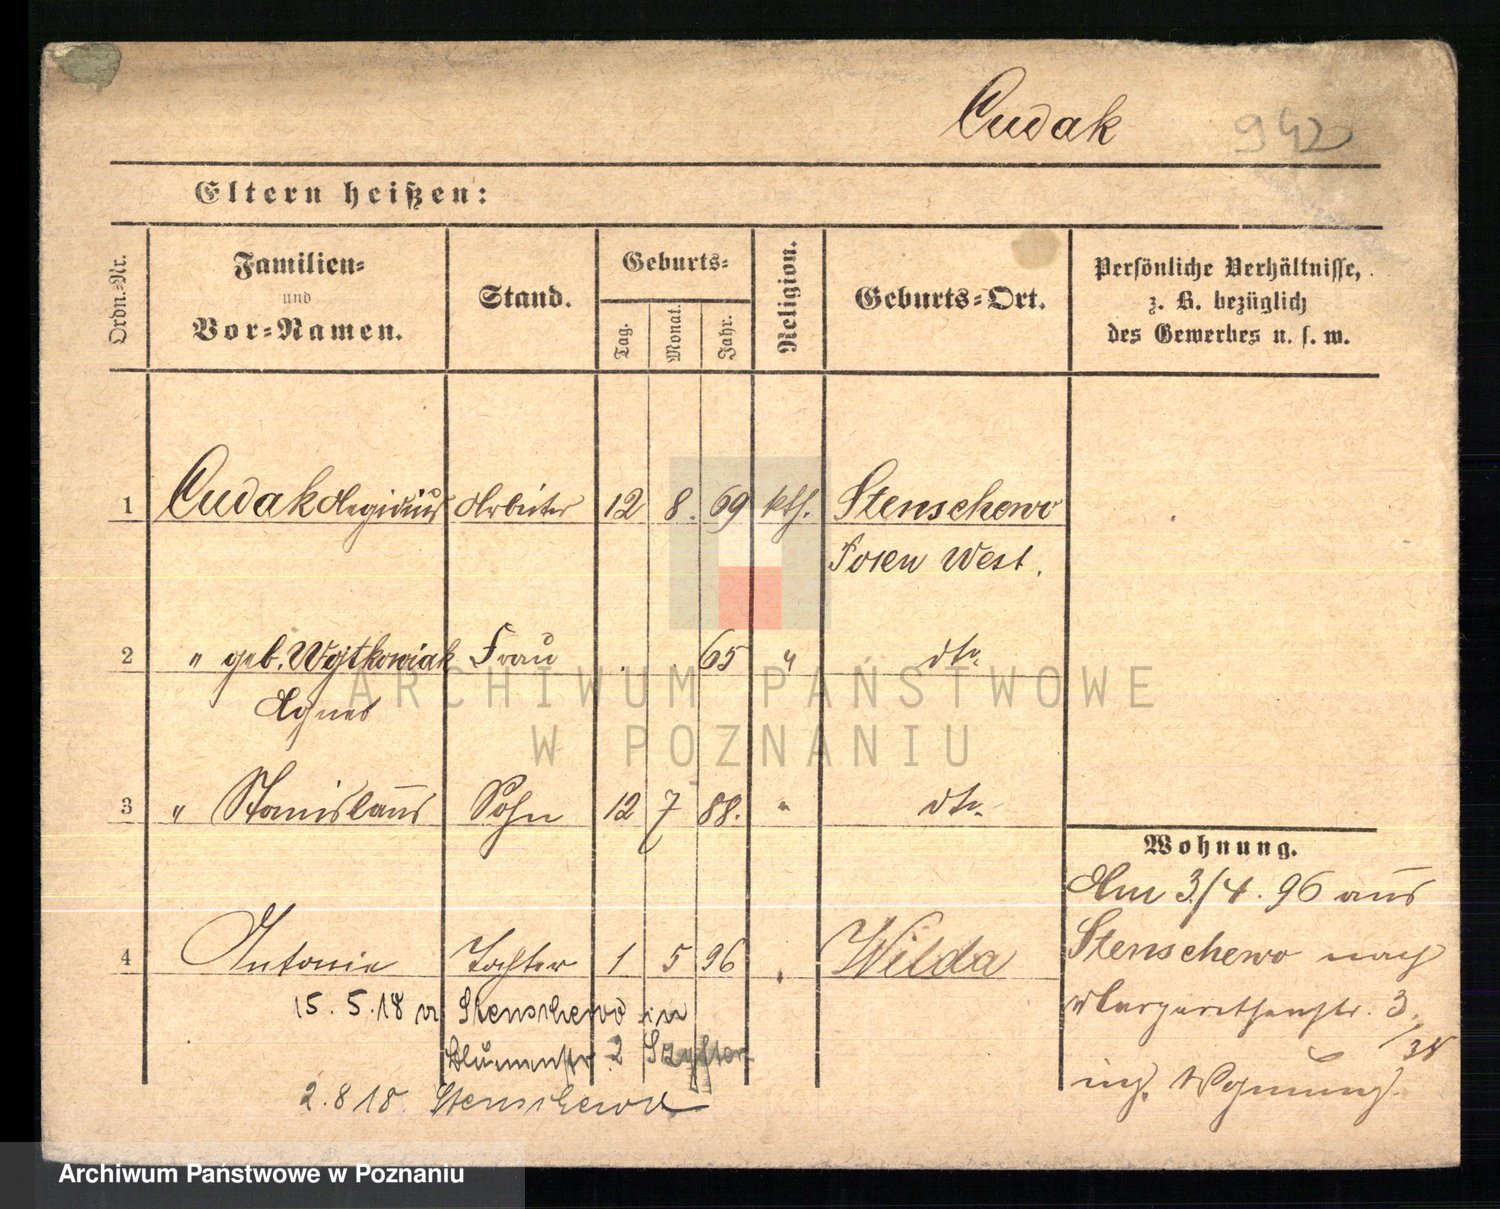 Cudak 942
Eltern heißen:
Ordn.-Nr.
Familien- und Vor-Namen.
Stand.
Geburts-
Tag. Monat. Jahr.
Religion.
Geburts-Ort.
Persönliche Verhältnisse, z. B. bezüglich des Gewerbes u. s. w.
1 Cudak Aegidius Arbeiter 12 8. 69 kth. Stenschewo
Posen West.
2 " geb. Wojtkowiak Frau 65 " dto.
Agnes
3 " Stanislaus Sohn 12 7 88. " dto.
4 Antonie Tochter 1 5 96 Wilda
15. 5. 18 v. Stenschewo in
Blumenstr. 2
2. 8 18. Stenschewo
Wohnung.
Am 3/4. 96 aus
Stenschewo nach
Margarethenstr. 3.
Wohnung.
ARCHIWUM PAŃSTWOWE
W POZNANIU
Archiwum Państwowe w Poznaniu